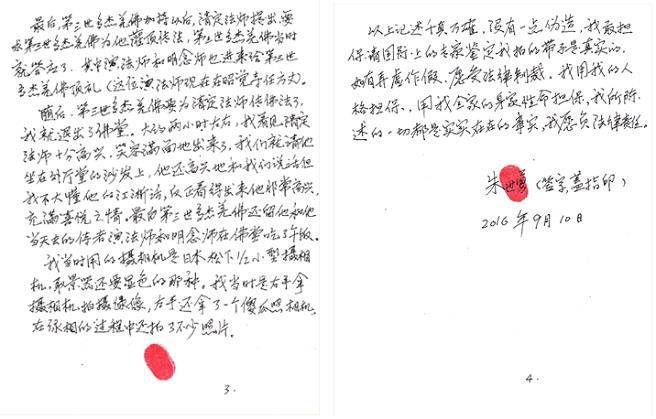 最后,第三世多杰羌佛加持以后,清定法师提出要
求第三世多杰羌佛为他灌顶传法,第三世多杰羌佛当时
就答应了,其中演法师和明念师也进来给第三世
多杰羌佛顶礼(这位演法师现在在昭觉寺任方丈)。
随后,第三世多杰羌佛要为清定法师传佛法了,
我就退出了佛堂。大约两小时左右,我看见清定
法师十分高兴,笑容满面地出来了,我们就请他
坐在外厅堂的沙发上,他还高兴地和我们说话但
我不大懂他的江浙话,反正看得出来他非常高兴,
充满喜悦之情。最后第三世多杰羌佛还留他和他
当天去的侍者演法师和明念师在佛堂吃了午饭。
我当时用的摄相机是日本松下1/2小型摄相
机,取景器还要显色的那种。我当时是右手拿
摄相机拍摄录像,左手还拿了一个傻瓜照相机,
在录相的过程中还拍了不少照片。
3.
以上记述千真万确,没有一点伪造,我敢担
保请国际上的专家鉴定我拍的带子是真实的,
如有弄虚作假,愿受法律制裁。我用我的人
格担保,用我全家的身家性命担保,我所陈
述的一切都是实实在在的事实,我愿负法律责任。
朱世 (签字,盖指印)
2016年9月10日
4.